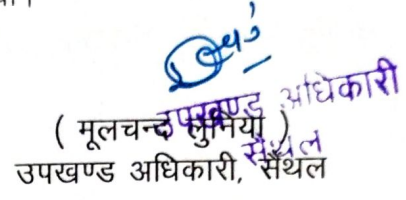 उपखण्ड अधिकारी
सैंथल
( मूलचन्द लुनिया )
उपखण्ड अधिकारी, सैंथल